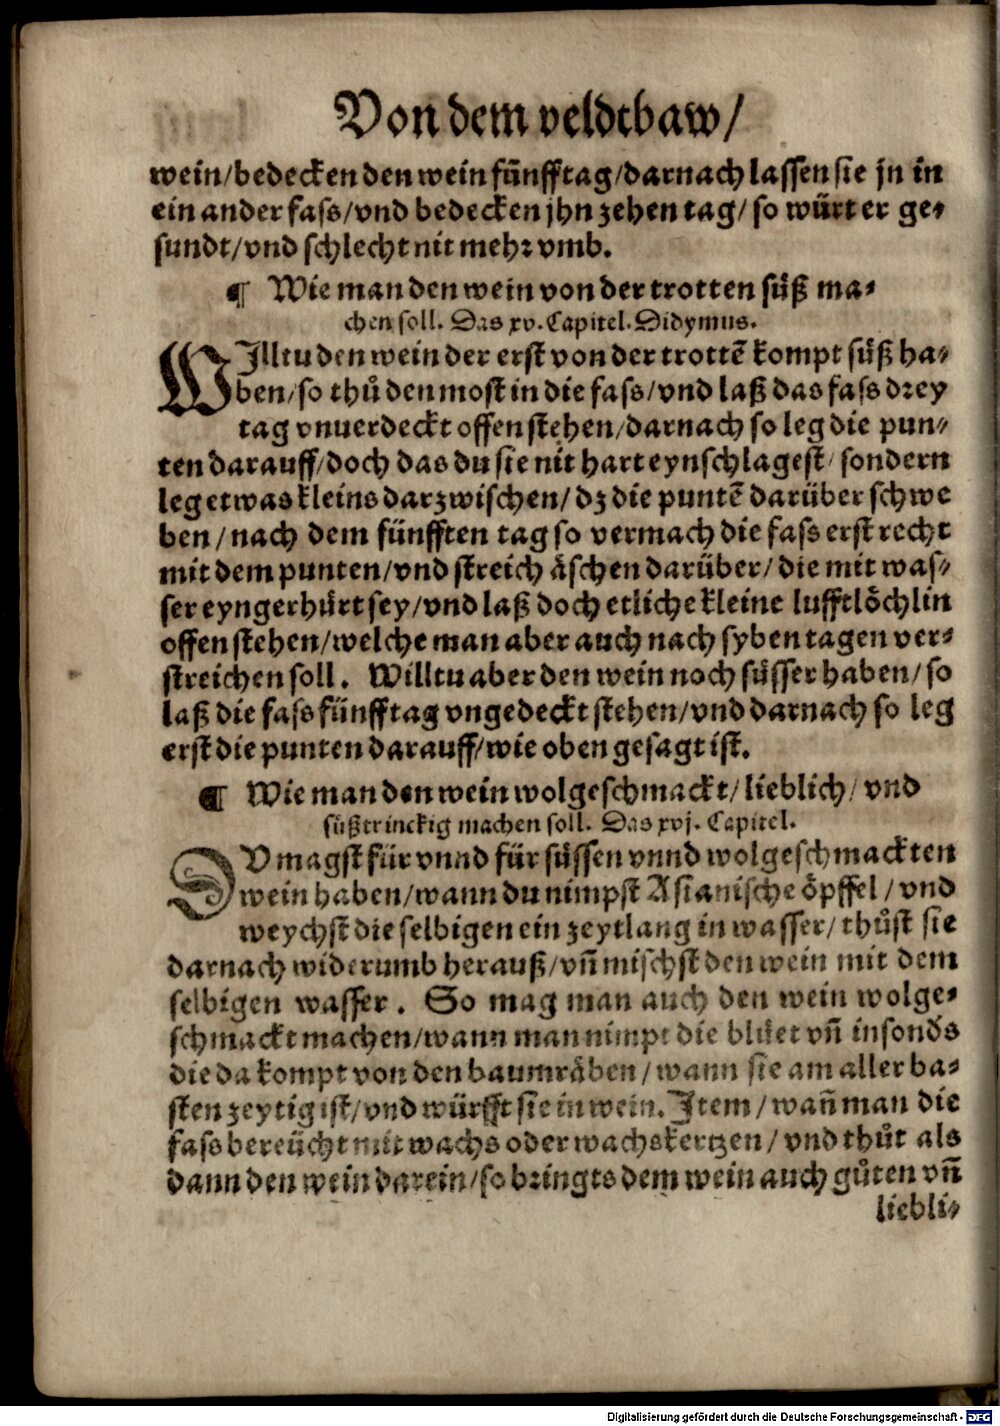 Von dem veldtbaw/
wein/bedecken den wein fünff tag/darnach lassen sie jn in
ein ander fass/vnd bedecken jhn zehen tag/ so würt er ge⸗
sundt/vnd schlecht nit mehr vmb.
¶ Wie man den wein von der trotten süß ma⸗
chen soll. Das xv. Capitel. Didymus.
WJlltu den wein der erst von der trottē kompt süß ha⸗
ben/so thů den most in die fass/vnd laß das fass drey
tag vnuerdeckt offen stehen/darnach so leg die pun⸗
ten darauff/doch das du sie nit hart eynschlagest/ sondern
leg etwas kleins darzwischen/ dz die puntē darüber schwe
ben/nach dem fünfften tag so vermach die fass erst recht
mit dem punten/vnd streich äschen darüber/ die mit was⸗
ser eyngerhürt sey/vnd laß doch etliche kleine lufftlöchlin
offen stehen/welche man aber auch nach syben tagen ver⸗
streichen soll. Willtu aber den wein noch süsser haben/ so
laß die fass fünff tag vngedeckt stehen/vnd darnach so leg
erst die punten darauff/wie oben gesagt ist.
¶ Wie man den wein wolgeschmackt/lieblich/ vnd
süßtrinckig machen soll. Das xvj. Capitel.
DV magst für vnnd für süssen vnnd wolgeschmackten
wein haben/wann du nimpst Asianische öpffel/ vnd
weychst die selbigen ein zeytlang in wasser/ thůst sie
darnach widerumb herauß/vñ mischst den wein mit dem
selbigen wasser. So mag man auch den wein wolge⸗
schmackt machen/wann man nimpt die blüet vñ insonds
die da kompt von den baumräben/wann sie am aller ba⸗
sten zeytig ist/vnd würfft sie in wein. Item/wañ man die
fass bereücht mit wachs oder wachskertzen/ vnd thůt als
dann den wein darein/so bringts dem wein auch gůten vñ
liebli⸗
Digitalisierung gefördert durch die Deutsche Forschungsgemeinschaft - DFG